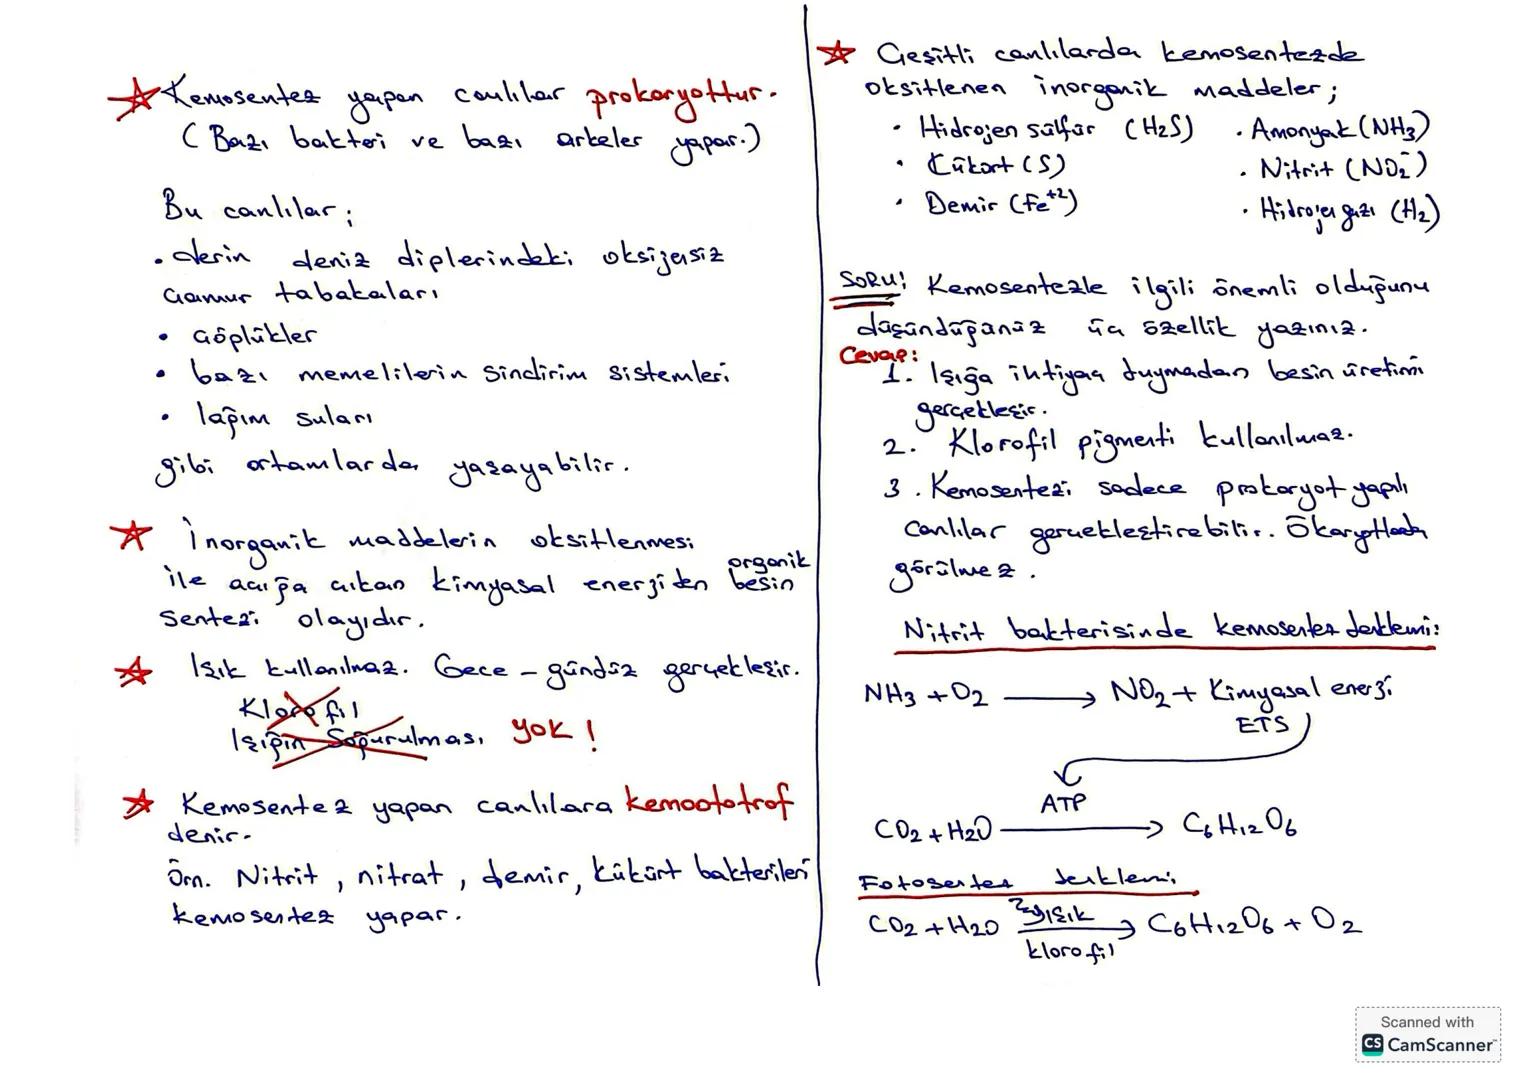 Kemosentez yapan canlılar prokaryottur.
(Bazı bakteri ve bazı arkeler yapar.)
Bu canlılar;
• derin deniz diplerindeki oksijensiz
çamur tabakaları
• çöplükler
• bazı memelilerin sindirim sistemleri
• lağım suları
gibi ortamlarda yaşayabilir.
İnorganik maddelerin oksitlenmesi
ile açığa çıkan kimyasal enerjiden organik besin
sentezi olayıdır.
Işık kullanılmaz. Gece - gündüz gerçekleşir.
Klorofil
Işığın Soğurulması YOK!
Kemosentez yapan canlılara kemoototrof
denir.
Örn. Nitrit, nitrat, demir, kükürt bakterileri
kemosentez yapar.
Çeşitli canlılarda kemosentezde
oksitlenen inorganik maddeler;
• Hidrojen sülfür (H2S) • Amonyak (NH3)
• Kükürt (S) • Nitrit (NO2-)
• Demir (Fe+2) • Hidrojen gazı (H2)
SORU! Kemosentezle ilgili önemli olduğunu
düşündüğünüz üç özellik yazınız.
Cevap:
1. Işığa ihtiyaç duymadan besin üretimi
gerçekleşir.
2. Klorofil pigmenti kullanılmaz.
3. Kemosentezi sadece prokaryot yapılı
canlılar gerçekleştirebilir. Ökaryotlarda
görülmez.
Nitrit bakterisinde kemosentez denklemi:
NH3 + O2 → NO2 + Kimyasal enerji
ETS
ATP
CO2 + H2O → C6H12O6
Fotosentez denklemi
CO2 + H2O ışık → C6H12O6 + O2
klorofil
Scanned with
CS CamScanner